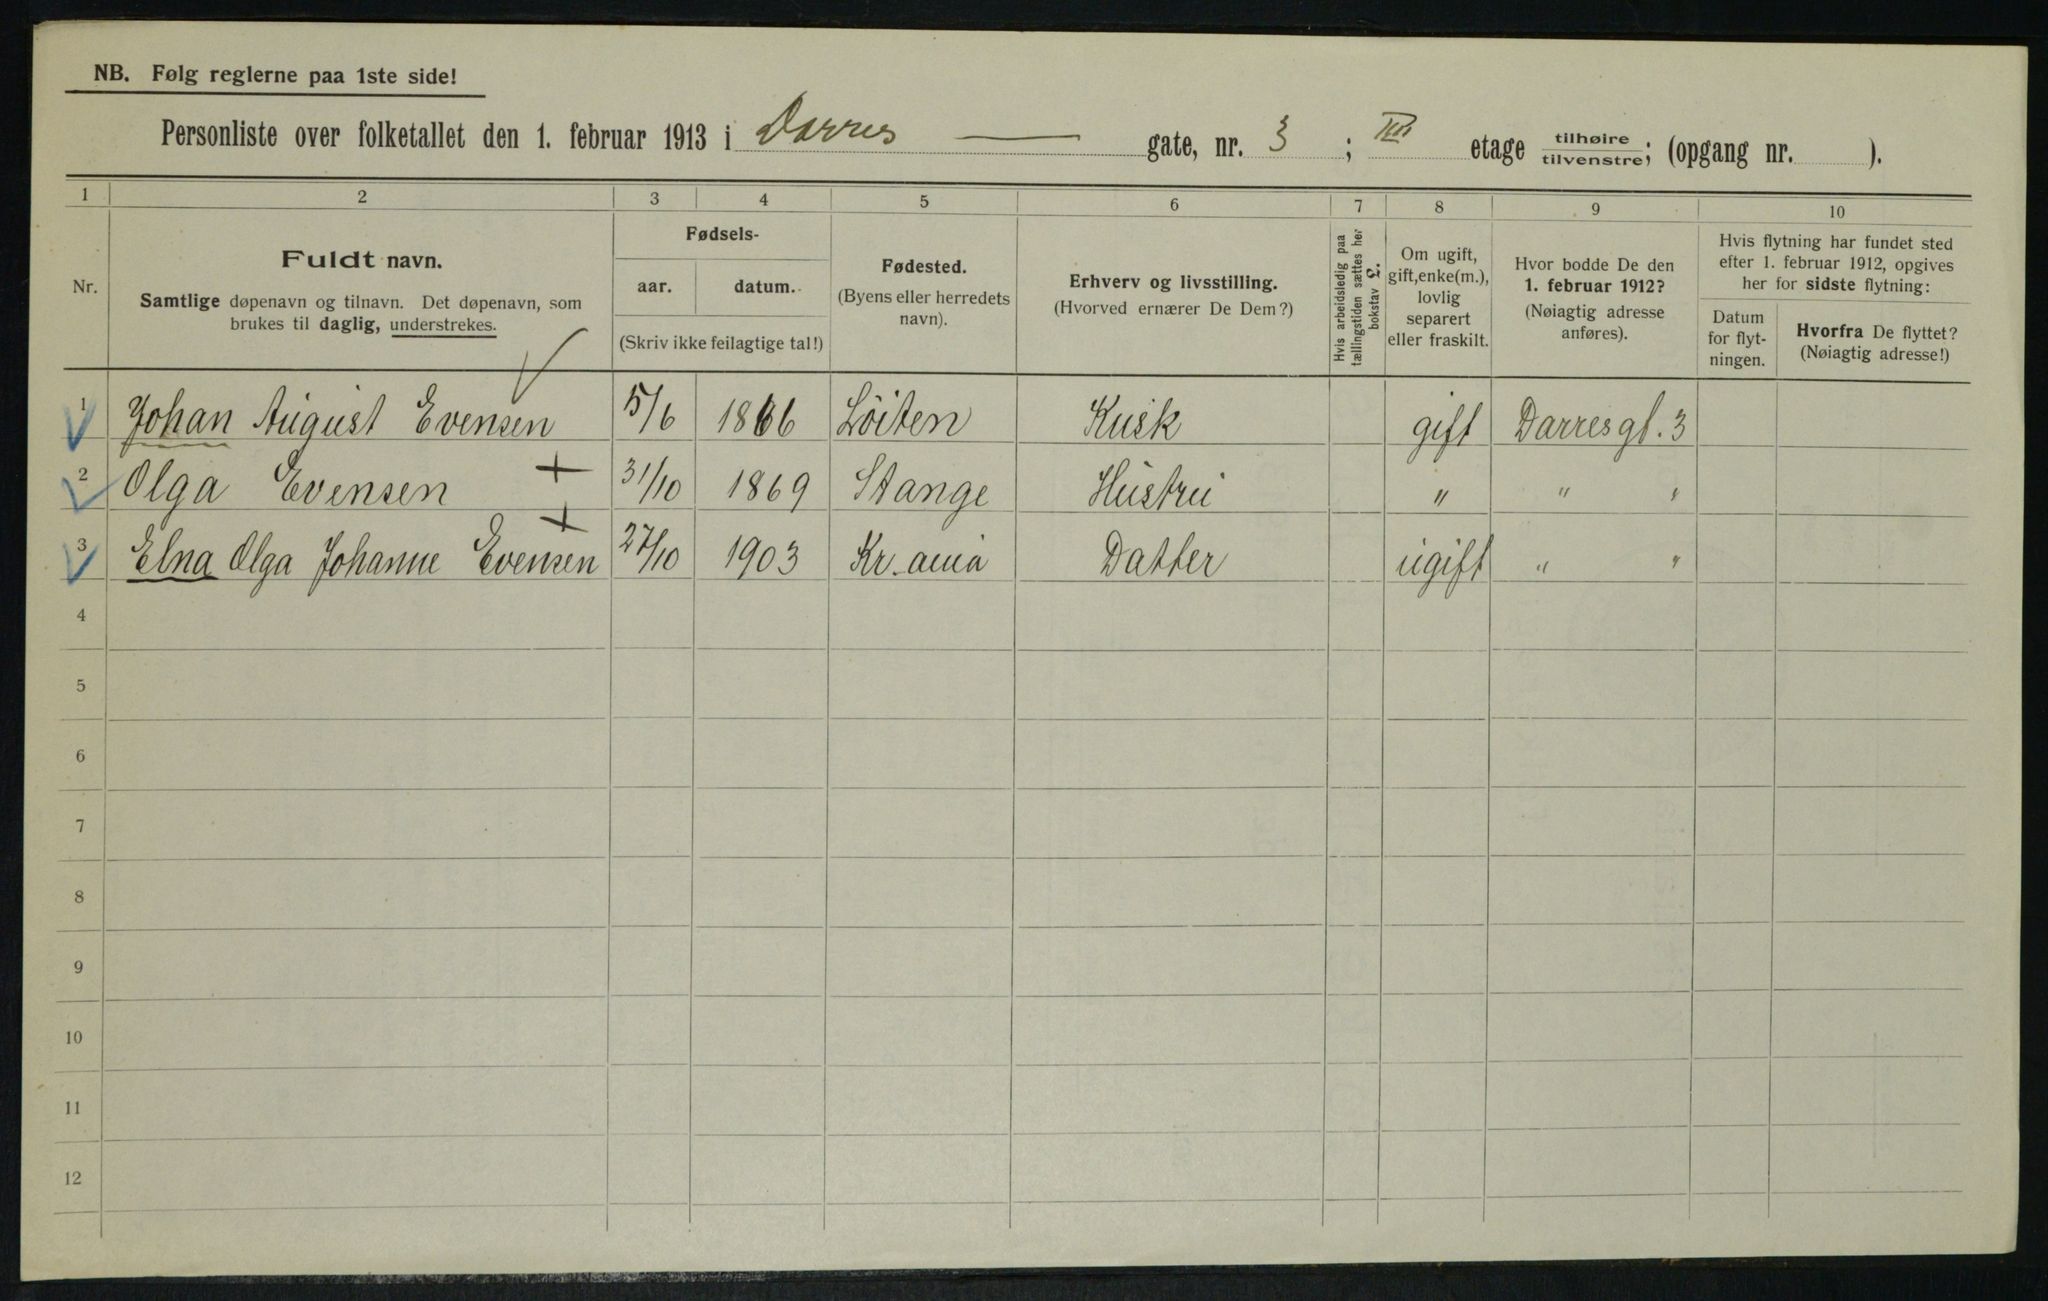 NB. Følg reglerne paa 1ste side!
Personliste over folketallet den 1. februar 1913 i Darres gate, nr. 3 ; III etage tilhøire tilvenstre; (opgang nr. ).
1 2 3 4 5 6 7 8 9 10
Nr.
Fuldt navn.
Samtlige døpenavn og tilnavn. Det døpenavn, som
brukes til daglig, understrekes.
Fødsels-
aar. datum.
(Skriv ikke feilagtige tal!)
Fødested.
(Byens eller herredets
navn).
Erhverv og livsstilling.
(Hvorved ernærer De Dem?)
Hvis arbeidsledig paa
tællingstiden sættes her
bokstav L.
Om ugift,
gift, enke(m.),
lovlig
separert
eller fraskilt.
Hvor bodde De den
1. februar 1912?
(Nøiagtig adresse
anføres).
Hvis flytning har fundet sted
efter 1. februar 1912, opgives
her for sidste flytning:
Datum
for flyt-
ningen.
Hvorfra De flyttet?
(Nøiagtig adresse!)
1 Johan August Evensen 15/6 1866 Löiten Kusk gift Darresgt. 3
2 Olga Evensen 31/10 1869 Stange Hustru " " "
3 Elna Olga Johanne Evensen 27/10 1903 Kr.ania Datter ugift " "
4
5
6
7
8
9
10
11
12